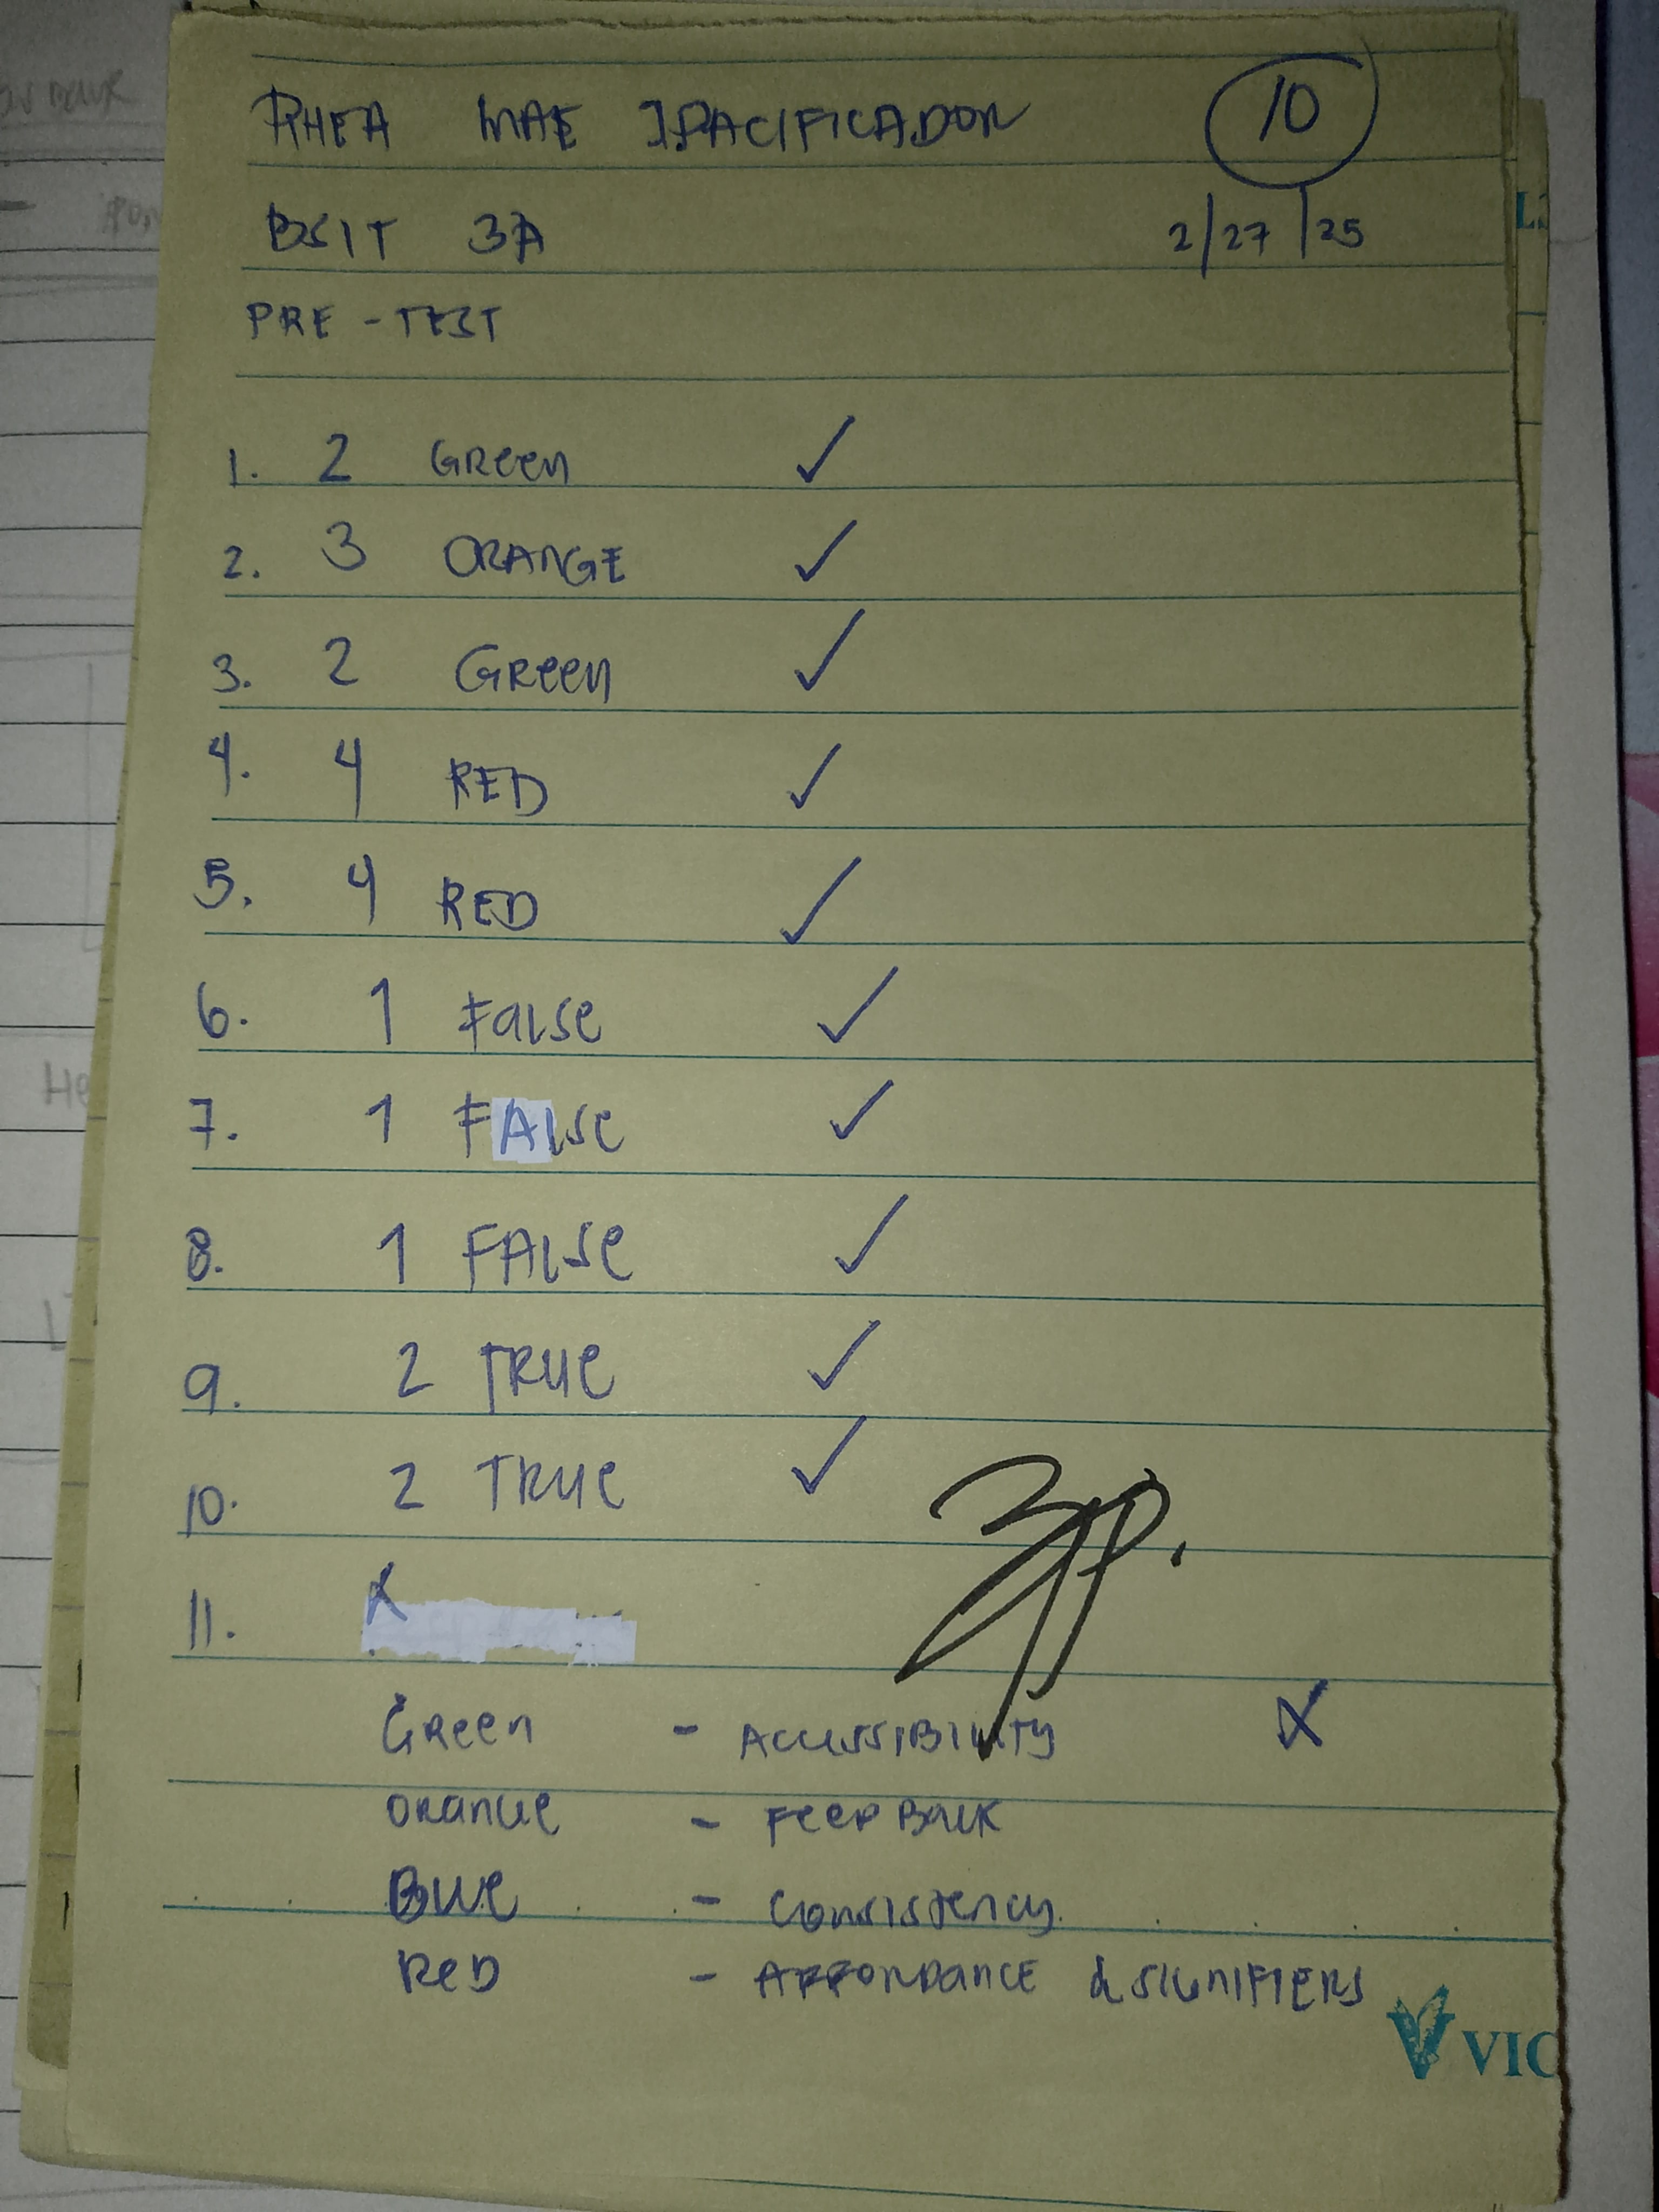 RHEA MAE J. PACIFICADOR 10
BSIT 3A 2/27/25
PRE-TEST
1. 2 Green ✓
2. 3 ORANGE ✓
3. 2 Green ✓
4. 4 RED ✓
5. 4 RED ✓
6. 1 False ✓
7. 1 FAlse ✓
8. 1 FAlse ✓
9. 2 TRUe ✓
10. 2 TRUe ✓
11. X
Green - Accessibility X
Orange - FeedBack
Blue - Consistency
ReD - AFFORDANCE & SIGNIFIERS
VIC